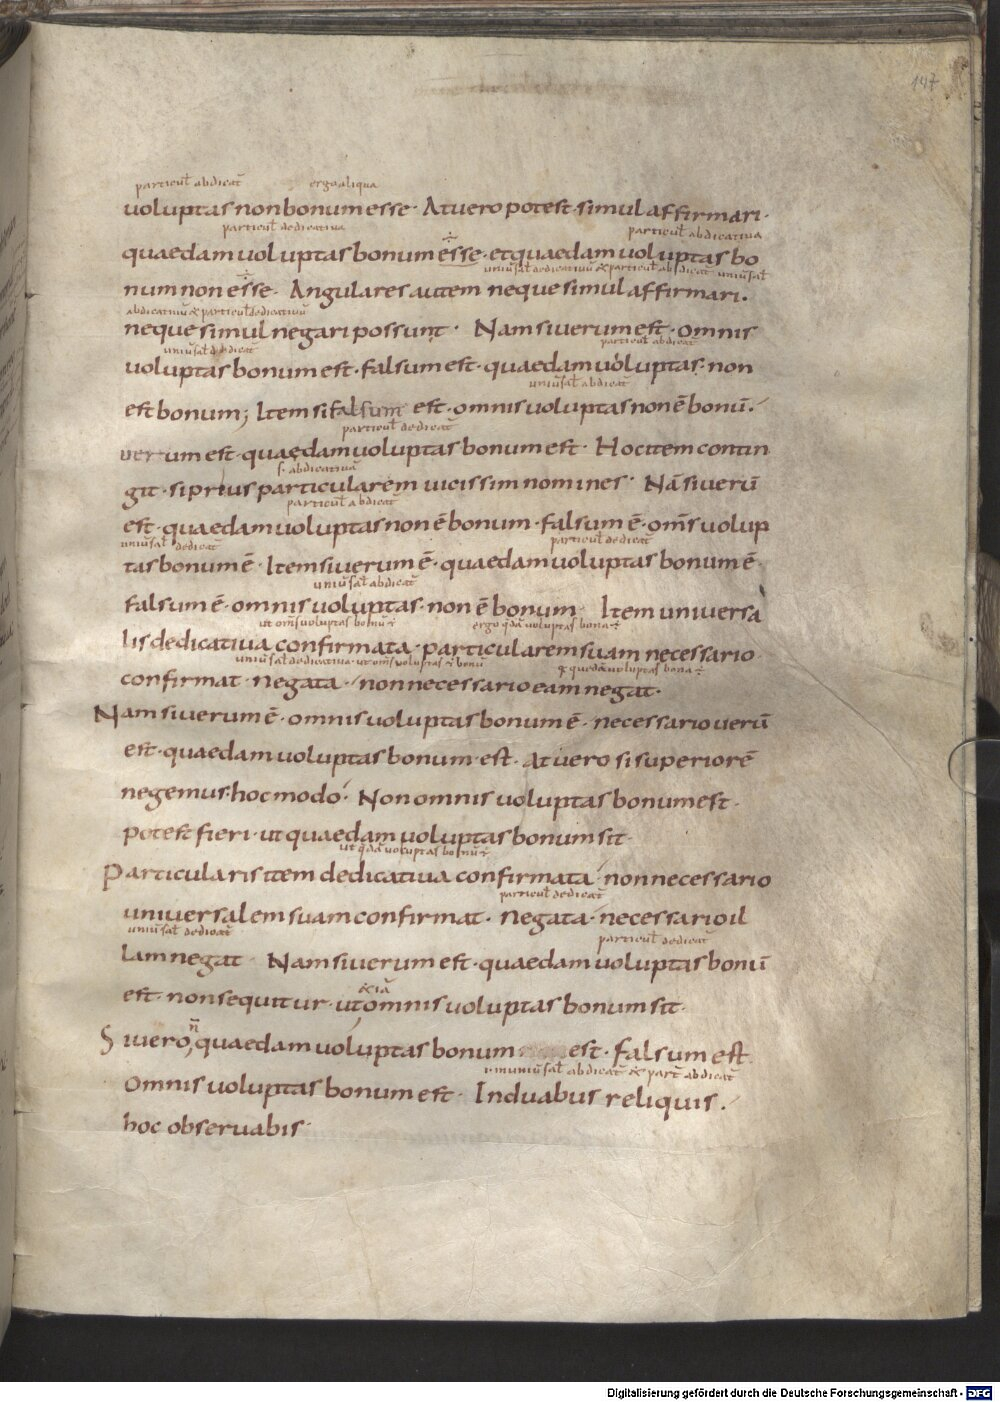 147
particul̄ abdicat̄ ergo aliqua
uoluptas non bonum esse · At uero potest simul affirmari ·
particul̄ dedicatiua particul̄ abdicatiua
quaedam uoluptas bonum esse · et quaedam uoluptas bo
uniu͛sal̄ dedicatiuū & particul̄ abdicat̄ uniu͛sal̄
num non esse · Angulares autem neque simul affirmari ·
abdicatiuū & particul̄ dedicatiuū
neque simul negari possunt · Nam si uerum est · omnis
uniu͛sal̄ dedicat̄ particul̄ abdicat̄
uoluptas bonum est · falsum est · quaedam uoluptas · non
uniu͛sal̄ abdicat̄
est bonum; Item si falsum est · omnis uoluptas non ē bonū ·
particul̄ dedicat̄
uerum est · quaedam uoluptas bonum est · Hoc item contin
s · abdicatiuā
git · si prius particularem uicissim nomines · Nā si uerū
particul̄ abdicat̄
est · quaedam uoluptas non ē bonum · falsum ē · om̄s uolup
uniu͛sal̄ dedicat̄ particul̄ dedicat̄
tas bonum ē · Item si uerum ē · quaedam uoluptas bonum ē ·
uniu͛sal̄ abdicat̄
falsum ē · omnis uoluptas · non ē bonum · Item uniuersa
ut om̄s uoluptas bonū ÷ ergo q̄dā uoluptas bona ÷
lis dedicatiua confirmata · particularem suam necessario
uniu͛sal̄ dedicatiua · ut om̄s uoluptas ÷ bonū quędā uoluptas bona ÷
confirmat · negata · non necessario eam negat ·
Nam si uerum ē · omnis uoluptas bonum ē · necessario uerū
est · quaedam uoluptas bonum est · At uero si superiorē
negemus · hoc modo · Non omnis uoluptas bonum est ·
potest fieri · ut quaedam uoluptas bonum sit ·
ut q̄dā uoluptas bonū ÷
Particularis item dedicatiua confirmata · non necessario
particul̄ dedicat̄
uniuersalem suam confirmat · Negata · necessario il
uniu͛sal̄ dedicat̄ particul̄ dedicat̄
lam negat · Nam si uerum est · quaedam uoluptas bonū
& iā
est · non sequitur · ut omnis uoluptas bonum sit ·
n̄
Si uero, quaedam uoluptas bonum est · Falsum est
uniu͛sal̄ abdicat̄ & part̄ abdicat̄
Omnis uoluptas bonum est · In duabus reliquis ·
hoc obseruabis ·
Digitalisierung gefördert durch die Deutsche Forschungsgemeinschaft - DFG